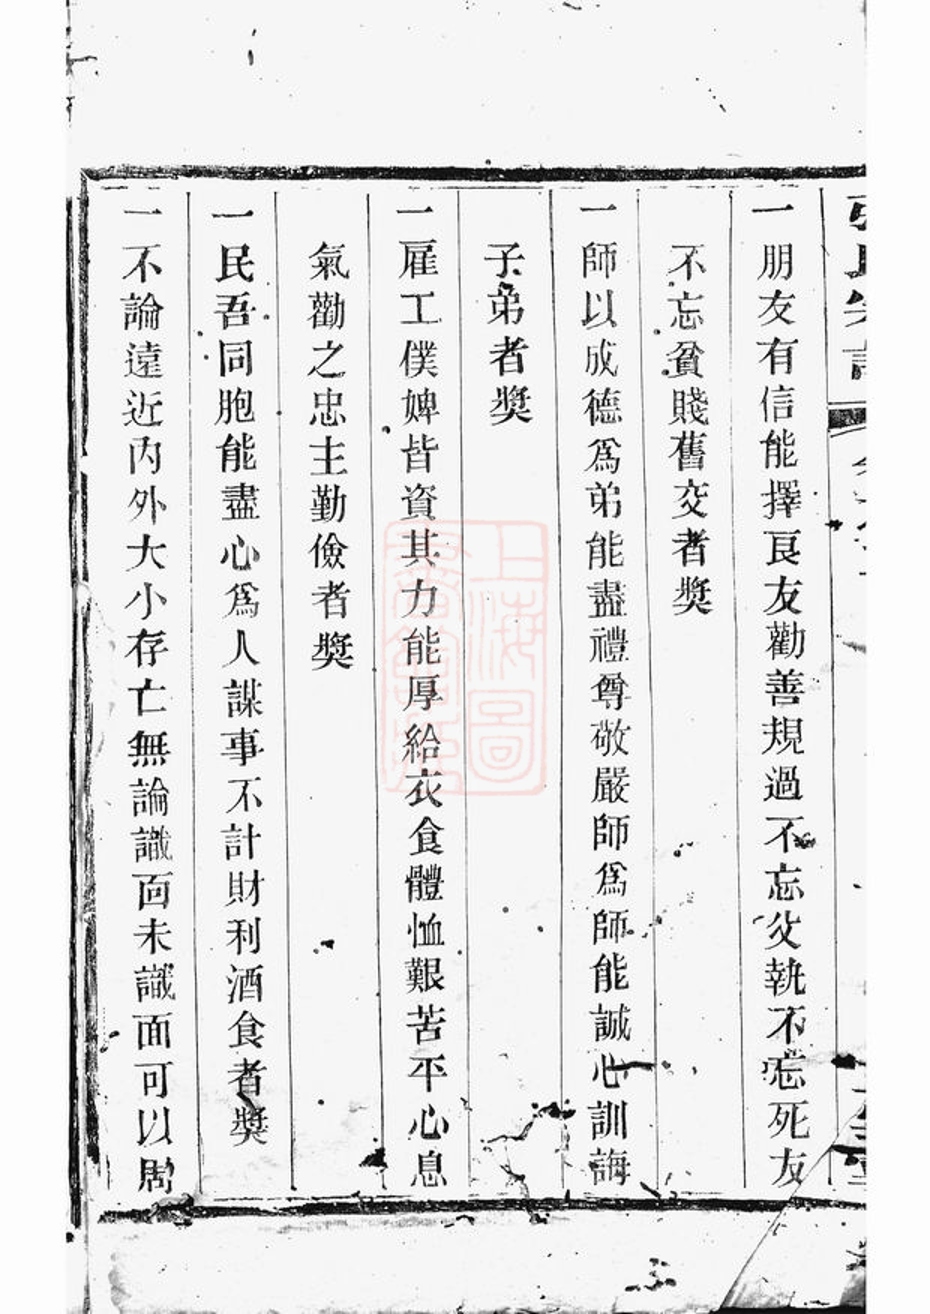 一朋友有信能擇良友勸善規過不忘父執不忘死友
不忘貧賤舊交者獎
一師以成德為弟能盡禮尊敬嚴師為師能誠心訓誨
子弟者獎
一雇工僕婢皆資其力能厚給衣食體恤艱苦平心息
氣勸之忠主勤儉者獎
一民吾同胞能盡心為人謀事不計財利酒食者獎
一不論遠近內外大小存亡無論識面未識面可以周
上海圖